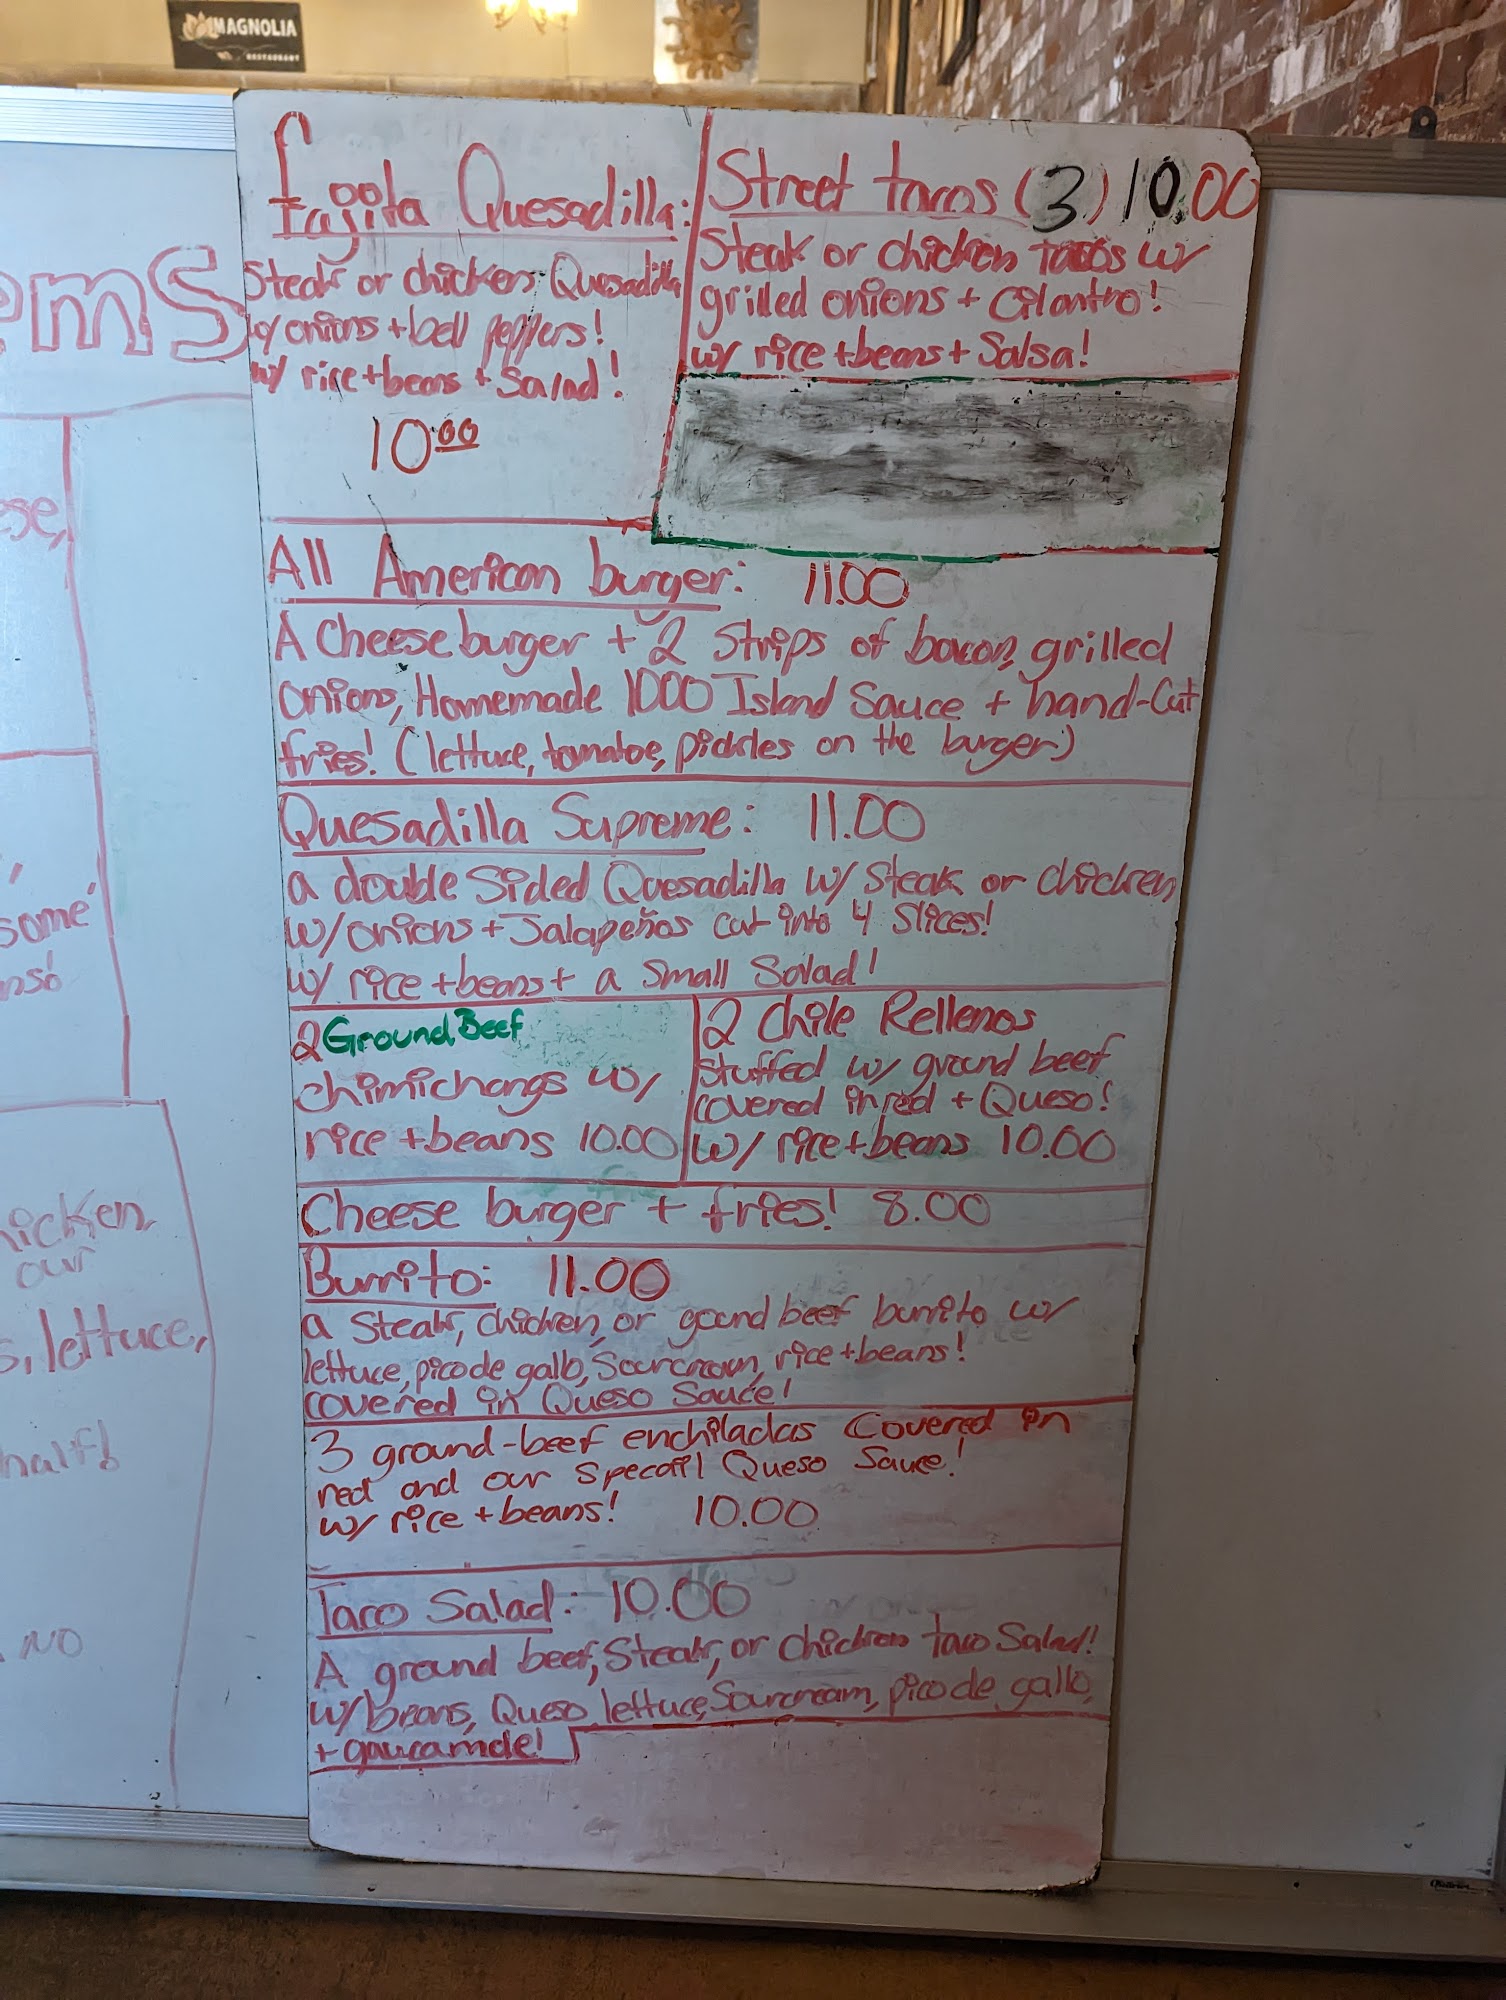 MAGNOLIA
RESTAURANT
ems
ese,
some
hicken
our
s, lettuce,
half!
NO
fajita Quesadilla:
Steak or chicken Quesadilla
w/ onions + bell peppers!
w/ rice + beans + Salad!
10.00
Street tacos (3) 10.00
Steak or chicken tacos w/
grilled onions + Cilantro!
w/ rice + beans + Salsa!
All American burger: 11.00
A Cheese burger + 2 Strips of bacon, grilled
onions, Homemade 1000 Island Sauce + hand-Cut
fries! (lettuce, tomatoe, pickles on the burger)
Quesadilla Supreme: 11.00
a double Sided Quesadilla w/ Steak or chicken
w/ onions + Jalapeños cut into 4 Slices!
w/ rice + beans + a Small Salad!
2 Ground Beef
chimichangs w/
rice + beans 10.00
2 Chile Rellenos
Stuffed w/ ground beef
covered in red + Queso!
w/ rice + beans 10.00
Cheese burger + fries! 8.00
Burrito: 11.00
a Steak, Chicken, or gound beef burrito w/
lettuce, pico de gallo, Sourcream, rice + beans!
covered in Queso Sauce!
3 ground-beef enchiladas Covered in
red and our Specail Queso Sauce!
w/ rice + beans! 10.00
Taco Salad: 10.00
A ground beef, Steak, or chicken taco Salad!
w/ beans, Queso lettuce, Sourcream, pico de gallo,
+ gaucamole!